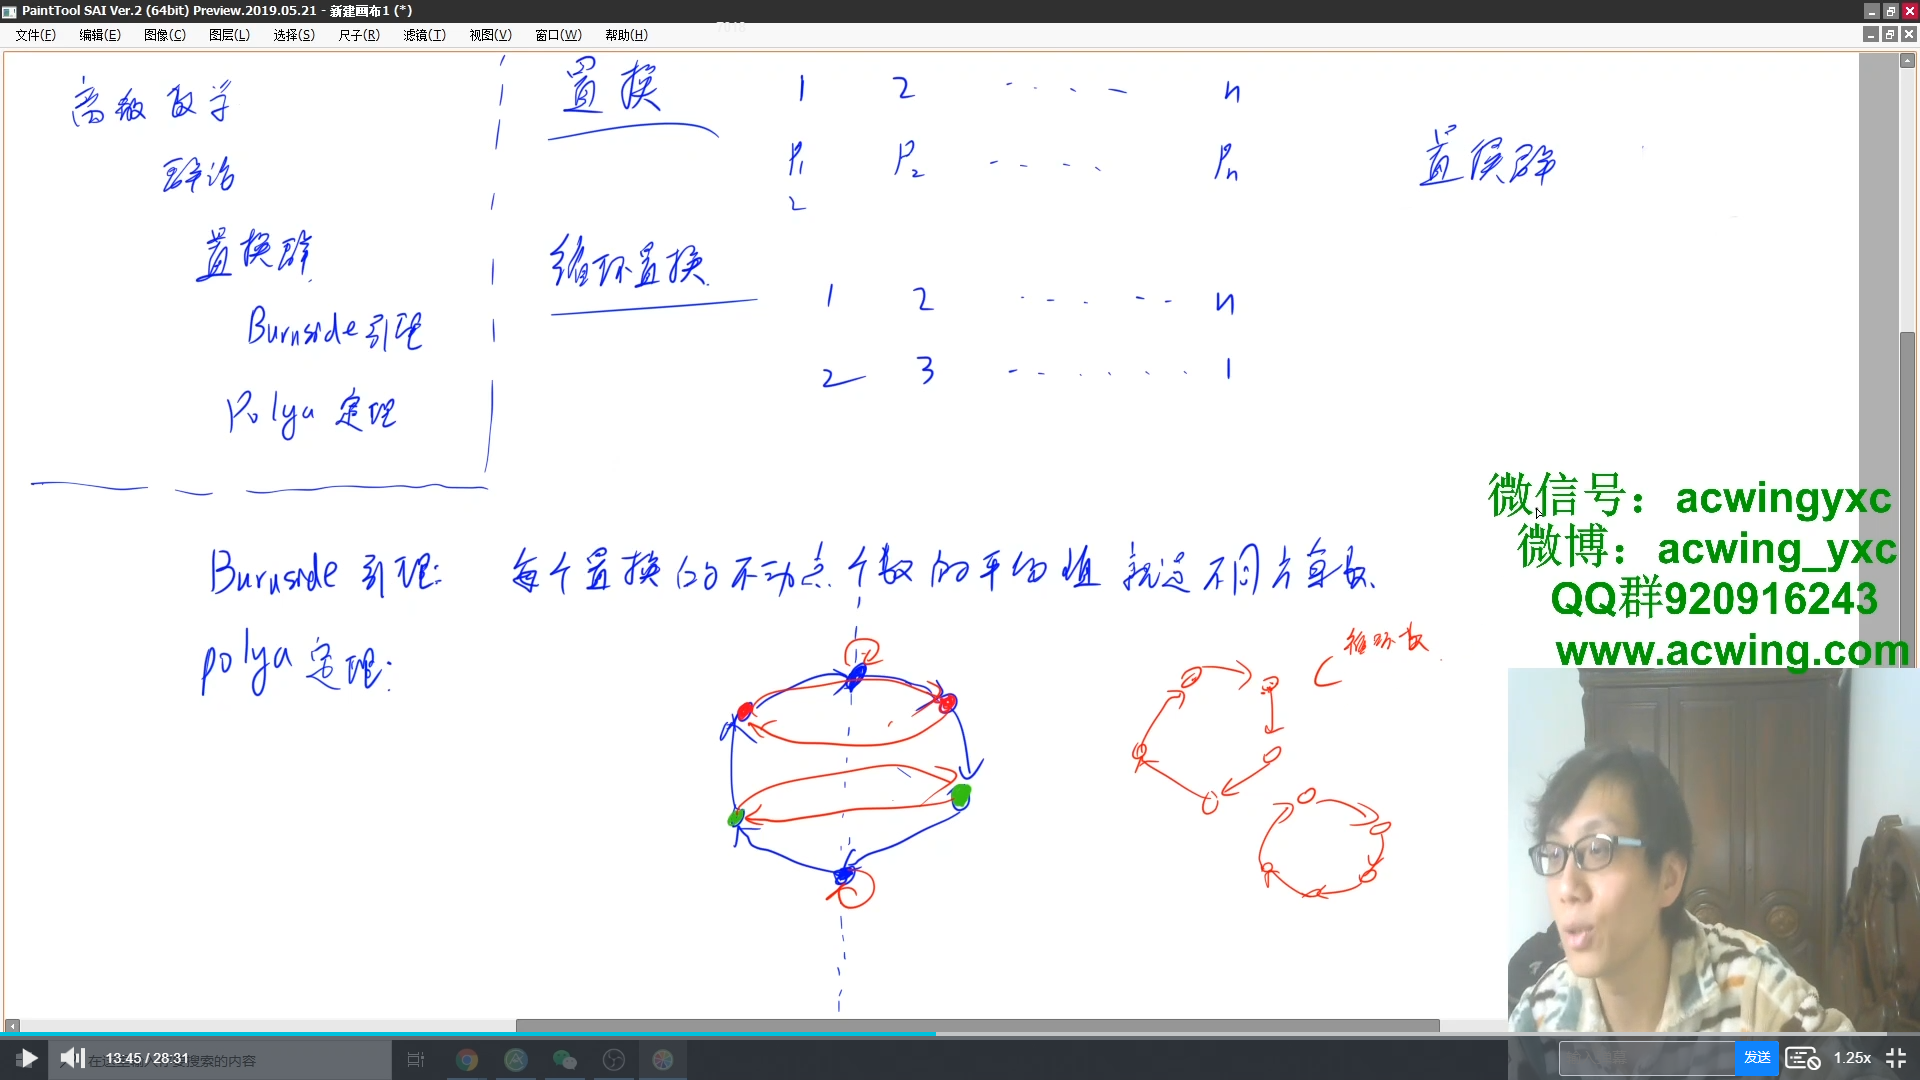 PaintTool SAI Ver.2 (64bit) Preview.2019.05.21 - 新建画布1 (*)
文件(F) 编辑(E) 图像(C) 图层(L) 选择(S) 尺子(R) 滤镜(T) 视图(V) 窗口(W) 帮助(H)
高级数学
群论
置换群
Burnside引理
Polya 定理
置换
1 2 ..... n
P1 P2 ..... Pn
2
置换群
循环置换
1 2 ..... n
2 3 ..... 1
Burnside 引理: 每个置换的不动点个数的平均值就是不同方案数.
polya 定理:
C 循环数
微信号：acwingyxc
微博：acwing_yxc
QQ群920916243
www.acwing.com
13:45 / 28:31
在这里输入你要搜索的内容
发送
1.25x